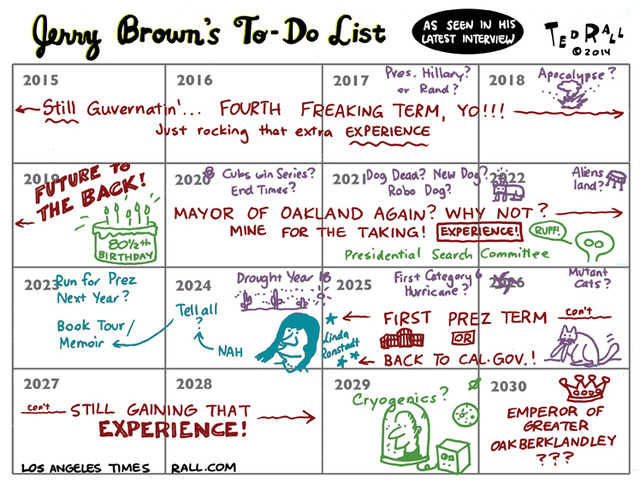 Jerry Brown's To-Do List
AS SEEN IN HIS
LATEST INTERVIEW
TED RALL
© 2014
2015
2016
2017
Pres. Hillary?
or Rand?
2018
Apocalypse?
Still Guvernatin'... FOURTH FREAKING TERM, YO!!!
Just rocking that extra EXPERIENCE
2019
FUTURE TO
THE BACK!
80½th
BIRTHDAY
2020
Cubs win Series?
End Times?
2021
Dog Dead? New Dog?
Robo Dog?
2022
Aliens
land?
MAYOR OF OAKLAND AGAIN? WHY NOT?
MINE FOR THE TAKING! EXPERIENCE!
RUFF!
Presidential Search Committee
2023
Run for Prez
Next Year?
Book Tour/
Memoir
2024
Tell all
?
NAH
Drought Year 18
Linda
Ronstadt
2025
First Category 6
Hurricane?
2026
Mutant
Cats?
FIRST PREZ TERM
con't
OR
BACK TO CAL. GOV.!
2027
2028
con't
STILL GAINING THAT
EXPERIENCE!
2029
Cryogenics?
2030
EMPEROR OF
GREATER
OAKBERKLANDLEY
???
LOS ANGELES TIMES RALL.COM